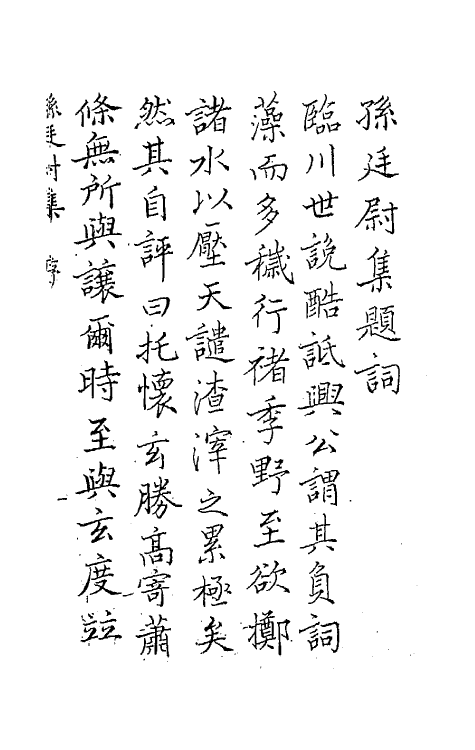 孫廷尉集題詞
臨川世說酷詆興公謂其負詞
藻而多穢行褚季野至欲擲
諸水以壓天譴渣滓之累極矣
然其自評曰托懷玄勝高寄蕭
條無所與讓爾時至與玄度竝
孫廷尉集 序